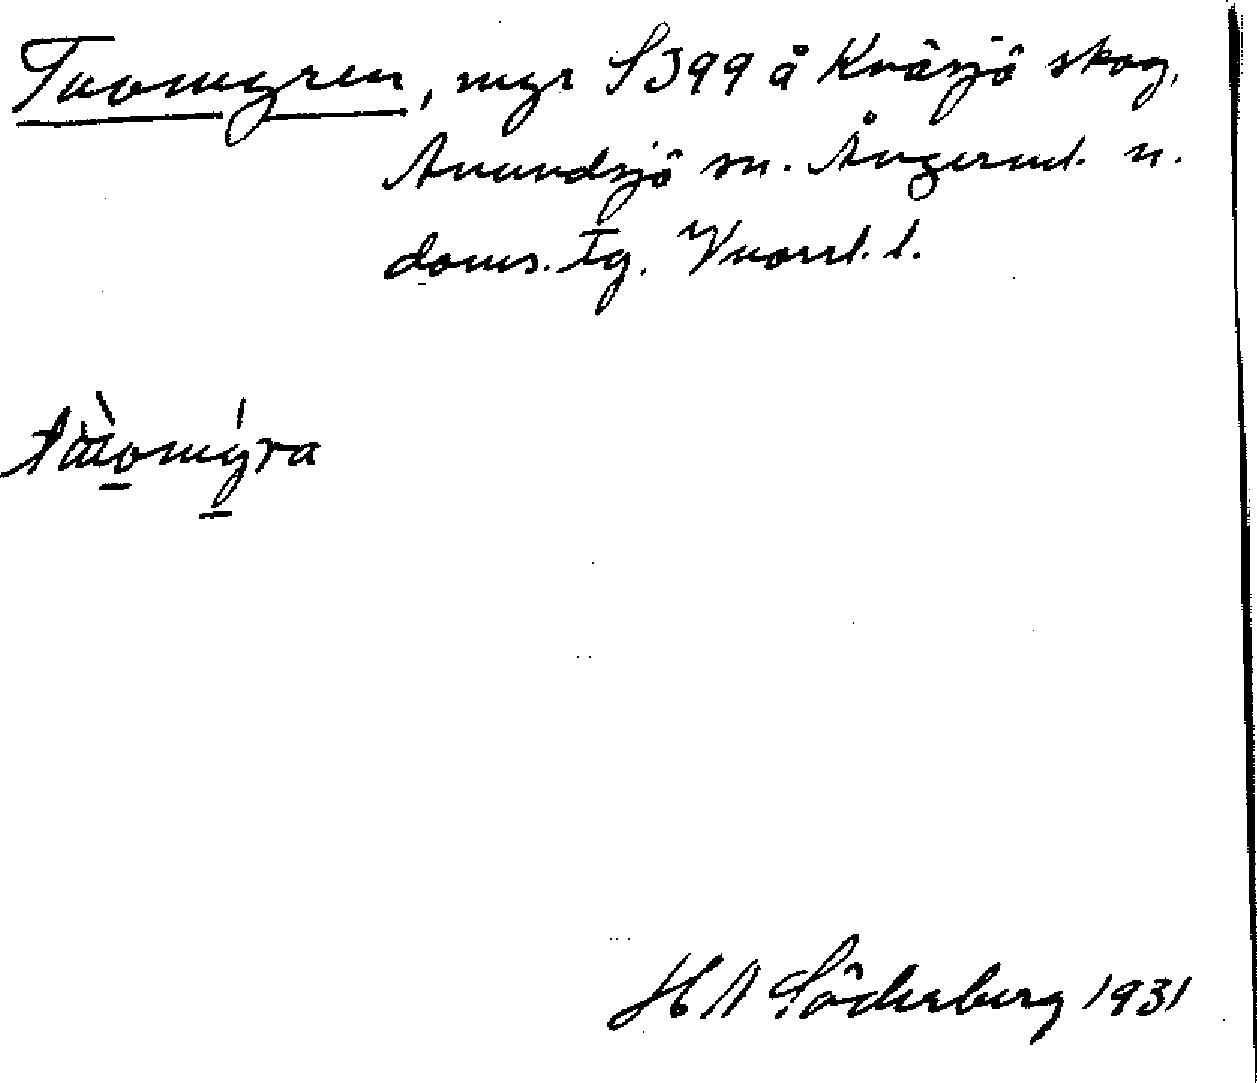 Tuomgren, mgr S399 å Kväsjö skog,
Anundsjö sn. Ångerml. n.
doms. Tg. Vnorrl. l.
H A Söderberg 1931